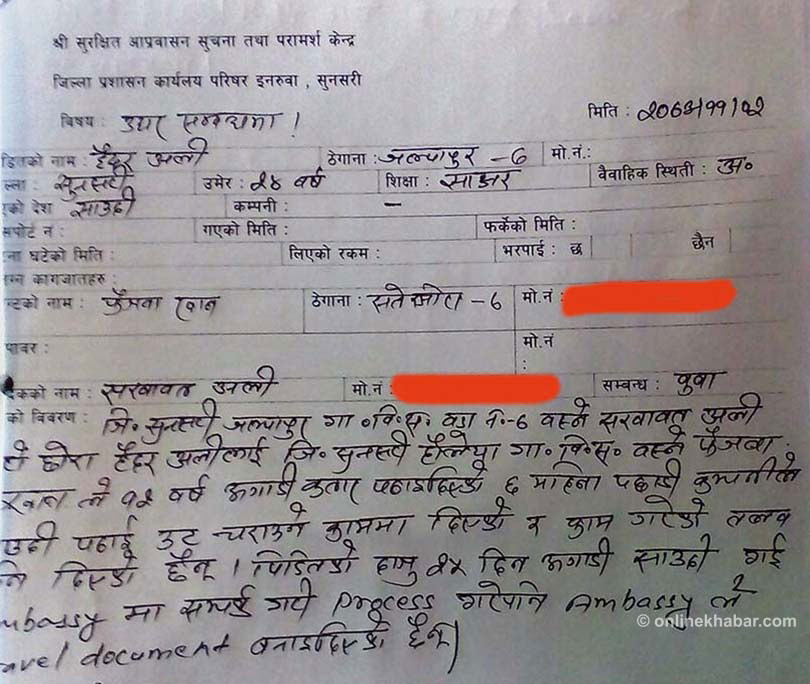 श्री सुरक्षित आप्रवासन सुचना तथा परामर्श केन्द्र
जिल्ला प्रशासन कार्यलय परिषर इनरुवा , सुनसरी
मिति : २०७३/११/१२
विषय : उद्दार सम्बन्धमा !
डितको नाम : हैदर अली ठेगाना : जल्पापुर -6 मो.नं.:
ल्ला : सुनसरी उमेर : २४ वर्ष शिक्षा : साक्षर वैवाहिक स्थिती : अ॰
एको देश साउदी कम्पनी : –
सपोर्ट न : गएको मिति : फर्केको मिति :
ना घटेको मिति : लिएको रकम : भरपाई : छ छैन
ग्न कागजातहरु :
न्टको नाम : फैजवा खान ठेगाना : -6 मो.नं :
पावर : मो.नं :
दकको नाम : सखावत अली मो.नं : सम्बन्ध : वुवा
को विवरण : जि. सुनसरी जल्पापुर गा॰वि॰स॰ वडा नं.-6 वस्ने सखावत अली
को छोरा हैदर अलीलाई जि. सुनसरी गा॰वि॰स॰ वस्ने फैजवा
खान ले १२ वर्ष अगाडी कतार पठाइदिएको ६ महिना पछाडी कम्पनीले
उदी पठाई उट चराउने काममा दिएको र काम गरेको तलव
नि दिएको छैन् । पिडितको दाजु २५ दिन अगाडी साउदी गई
mbassy मा सम्पर्क गरी process गरेपनि Ambassy ले
ravel document बनाइदिएको छैन्।
© onlinekhabar.com